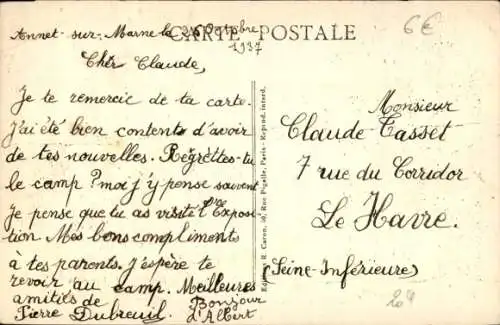 CARTE POSTALE
6€
Annet-sur-Marne le 26 Octobre
1937
Cher Claude,
Je te remercie de ta carte.
J'ai été bien contents d'avoir
de tes nouvelles. Regrettes-tu
le camp ? moi j'y pense souvent
Je pense que tu as visité l'Exposi
tion. Mes bons compliments
à tes parents. J'espère te
revoir au camp. Meilleures
amitiés de
Pierre Dubreuil.
Bonjour
d'Albert
Edition R. Caron, Rue Pigalle, Paris - Reprod. interd.
Monsieur
Claude Casset
7 rue du Corridor
Le Havre.
Seine-Inférieure